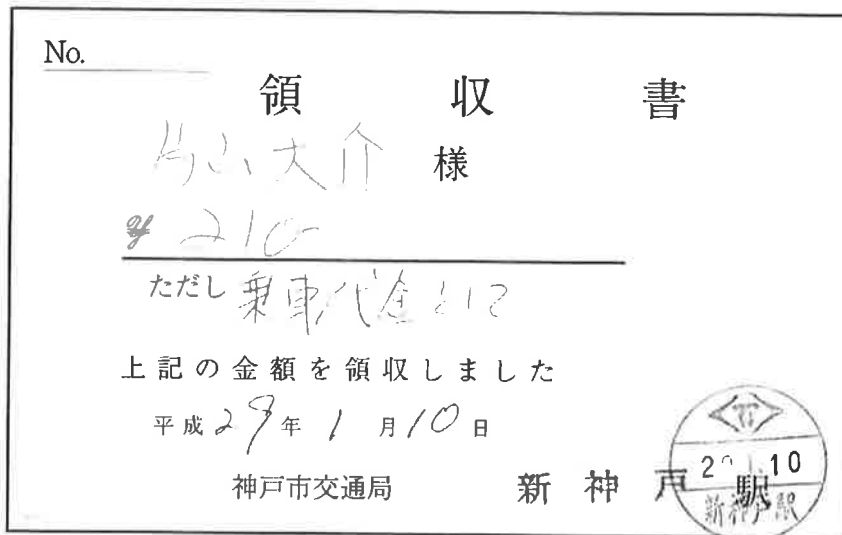 No.
領収書
片山大介 様
¥210-
ただし 乗車代金として
上記の金額を領収しました
平成29年1月10日
神戸市交通局 新神戸駅
10
新神戸駅